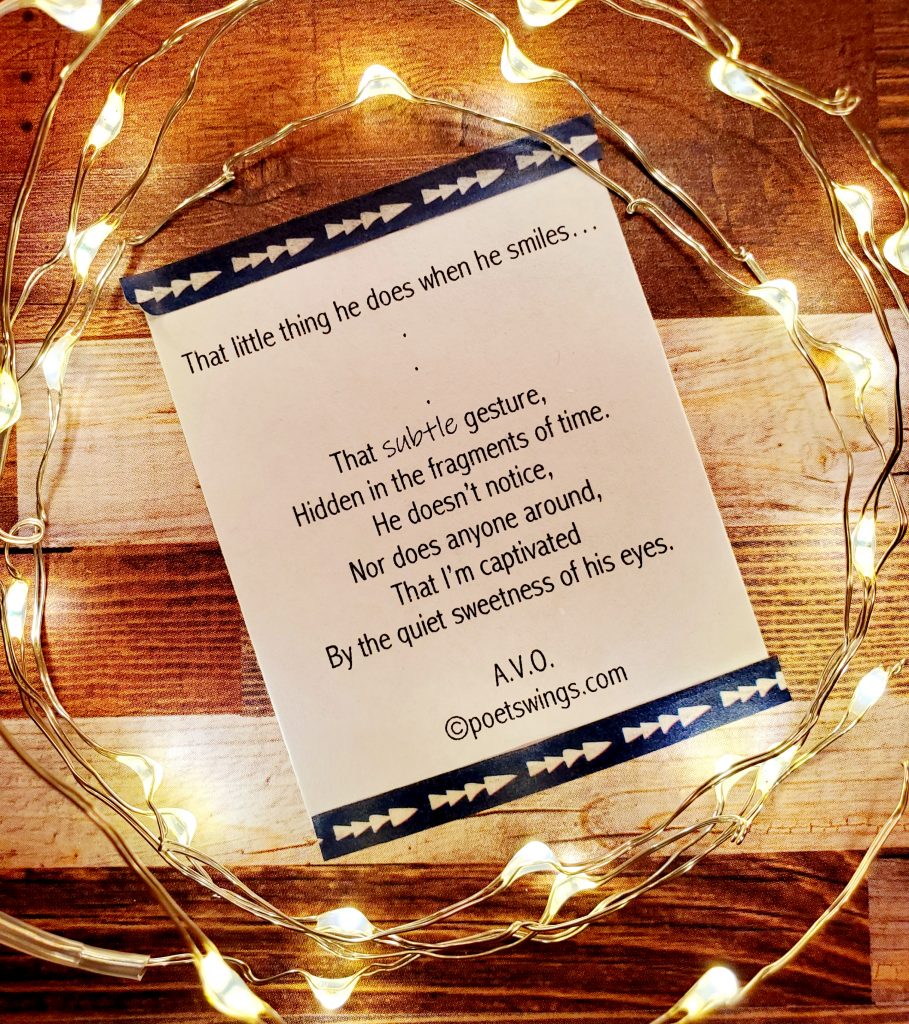 That little thing he does when he smiles...
.
.
.
That subtle gesture,
Hidden in the fragments of time.
He doesn't notice,
Nor does anyone around,
That I'm captivated
By the quiet sweetness of his eyes.
A.V.O.
©poetswings.com